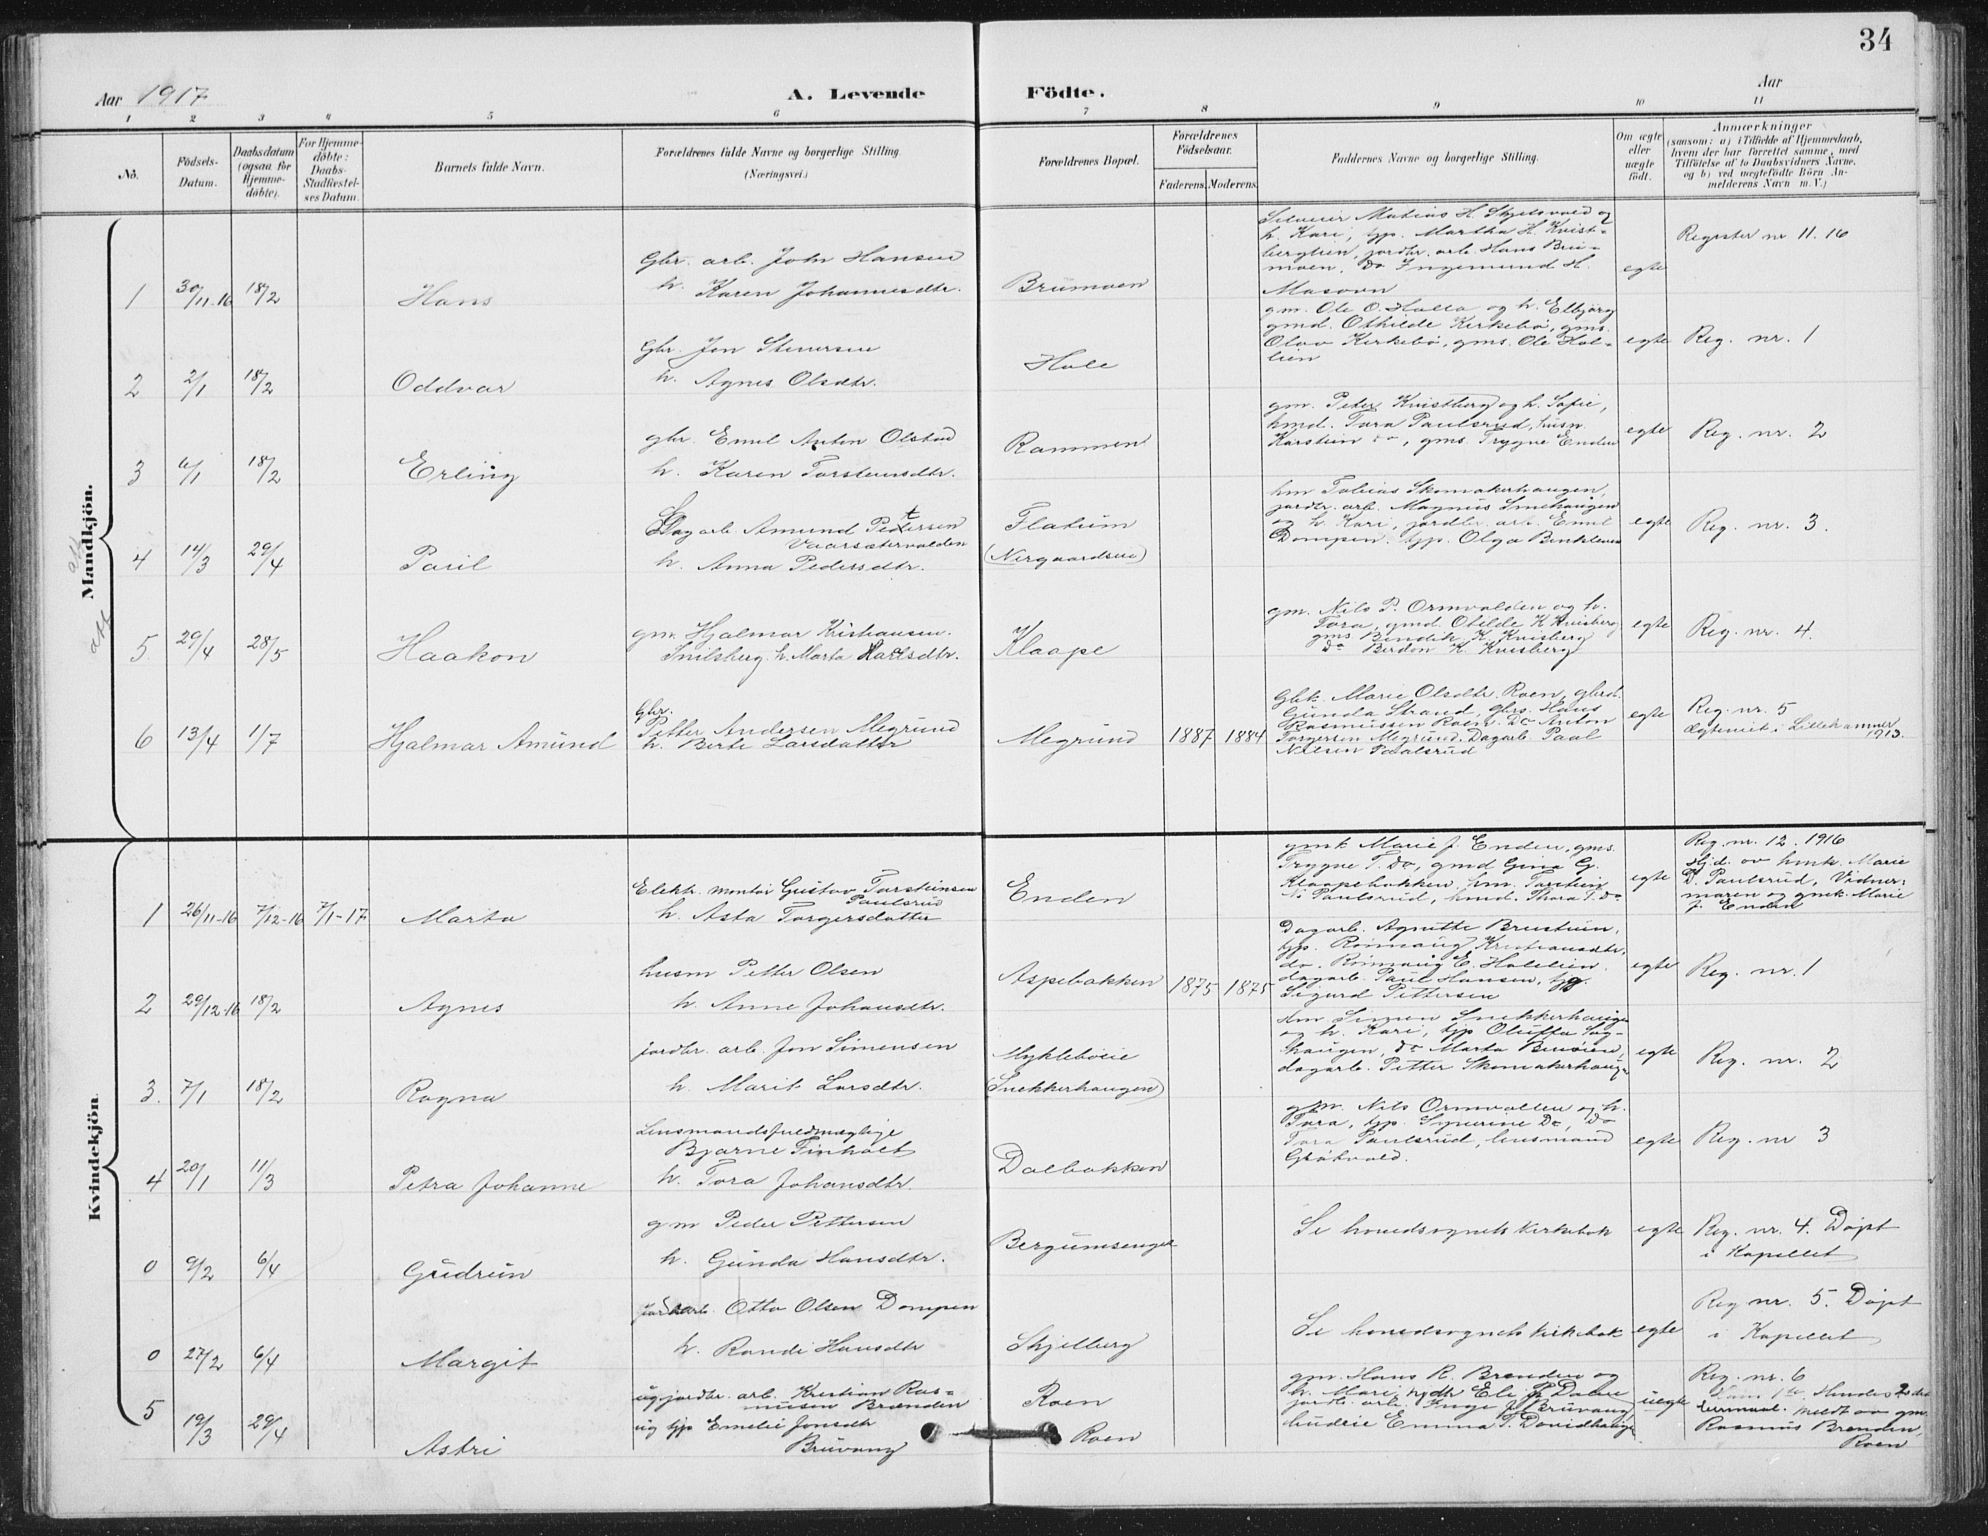 34
Aar 1917
A. Levende Födte.
Aar
1 2 3 4 5 6 7 8 9 10 11
No.
Födsels-Datum.
Daabsdatum (ogsaa for Hjemme-döbte).
For Hjemme-döbte: Daabs-Stadfæstel-ses Datum.
Barnets fulde Navn.
Forældrenes fulde Navne og borgerlige Stilling.
(Næringsvei.)
Forældrenes Bopæl.
Forældrenes Födselsaar.
Faderens. Moderens.
Faddernes Navne og borgerlige Stilling.
Om ægte eller uægte födt.
Anmærkninger
(sansom: a) i Tilfælde af Hjemmedaab, hvem der har forrettet samme, med Tilföielse af to Daabsvidners Navne, og b) ved uægtefödte Börn An-melderens Navn m. V.)
Mandkjön.
att
att
1 30/11-16 18/2 Hans
Gbr. arb. John Hansen
h. Karen Johannesdtr.
Brümoen
Mathias H. Skjelsvold og
h. Kari, tjp. Martha H. Kvist-
berglien, jordbr. arb. Hans Brü-
moen. Do Ingemund H.
Masovn
egte
Register nr 11. 16
2 2/1 18/2 Oddvar
Gbr. Jon Simensen
h. Agnes Olsdtr.
Hole
gm. Ole O. Holla og h. Elbjørg
gmd. Othilde Kirkebø, gms.
Olav Kirkebø, gms. Ole Hol-
lien
egte
Reg. nr. 1
3 6/1 18/2 Erling
gbr. Emil Anton Olstad
h. Karen Torsteinsdtr.
Rammen
gm. Peder Kvistberg og h. Sofie,
hmd. Tora Paulsrud, husm.
Karstein do, gms. Trygve Enden
egte
Reg. nr. 2
4 14/3 29/4 Paul
Dagarb Amund Pettersen
Vaarsætervolden
h. Anna Pedersdtr.
Flatüm
(Nergaardseie)
hm Tobias Skomakerhaugen,
jordbr. arb. Magnus Smehaugen
og h. Kari, jordbr. arb. Emil
Dompen. tjp. Olga
egte
Reg. nr. 3.
5 29/4 28/5 Haakon
gm. Hjalmar Kristiansen
Snilsberg h. Marta Karlsdtr.
Klaape
gm. Nils P. Ormvolden og h.
Tora, gmd. Otilde K Kvisberg
gms. Bendik K. Kvisberg
Do K. Kvisberg
egte
Reg. nr. 4.
6 13/4 1/7 Hjalmar Amünd
Gbr.
Petter Andersen Megründ
h. Berte Larsdatter
Megründ
1887 1884
Gbk. Marie Olsdtr. Roen, gbrd.
Günda Strand, gbrs. Hans
Rasmussen Roen. Do Anton
Torgersen Megründ. Dagarb. Paul
Nielsen Paulsrüd
egte
Reg. nr. 5
Ægteviet i Lillehammer
1913.
Kvindekjön
1 26/11-16 7/12-16 7/1-17 Marta
Elektr. montør Gustav Torsteinsen
Paulsrüd
h. Asta Torgersdatter
Enden
gmk Marie J. Enden, gms.
Trygve T. Do, gmd Gina G.
Klaapebakken, hm. Torstein
N. Paulsrud, hmd. Thora T. Do
egte
Reg. nr. 12. 1916
Hj.d. av hmk. Marie
D. Paulsrüd, Vidner:
moren og gmk. Marie
J. Enden
2 29/12-16 18/2 Agnes
husm Petter Olsen
h. Anne Johansdtr.
Aspebakken
1875 1875
Dagarb. Agnethe Brustuen,
tjp. Rønnaug Kristiansdtr,
do. Rønnaug E. Holelien.
dagarb. Paul Hansen, tjg.
Sigurd Pettersen
egte
Reg. nr. 1
3. 7/1 18/2 Ragna
jordbr. arb. Jon Simensen
h. Marit Larsdtr.
Mykleböeie
(Snekkerhaugen)
hm Simen Snekkerhaugen
og h. Kari, tjp Olufta Sag-
haugen, do Marta
dagarb. Petter Skomakerhaugen
egte
Reg. nr. 2
4 20/1 11/3 Petra Johanne
Lensmandsfuldmægtige
Bjarne Finholt
h. Tora Johansdtr.
Dalbakken
gm. Nils Ormvolden og h.
Tora, tjp. Do, Do
Tora Paulsrüd, lensmand
Grøtvold.
egte
Reg. nr 3
0 9/2 6/4 Güdrün
gm Peder Pettersen
h. Günda Hansdtr.
Bergümsenget
Se hovedsognets kirkebok
egte
Reg. nr. 4. Døpt
i Kapellet
0 27/2 6/4 Margit
jordarb. Otto Olsen Dompen
h. Randi Hansdtr
Skjelberg
Se hovedsognets kirkebok
egte
Reg nr. 5. Døpt
i Kapellet
5 19/3 29/4 Astri
ug jordbr. arb. Kristian Ras-
musen Brænden
ug tjp Emelie Jonsdtr
Brüvang
Roen
Roen
gm. Hans R. Brænden og
h. Marie,
jordbr. arb. Inge J. Brüvang
Emma
uegte
Reg. nr. 6
Hans 1ste Hendes 2det
leiermaal. meldt av gm.
Rasmus Brenden,
Roen